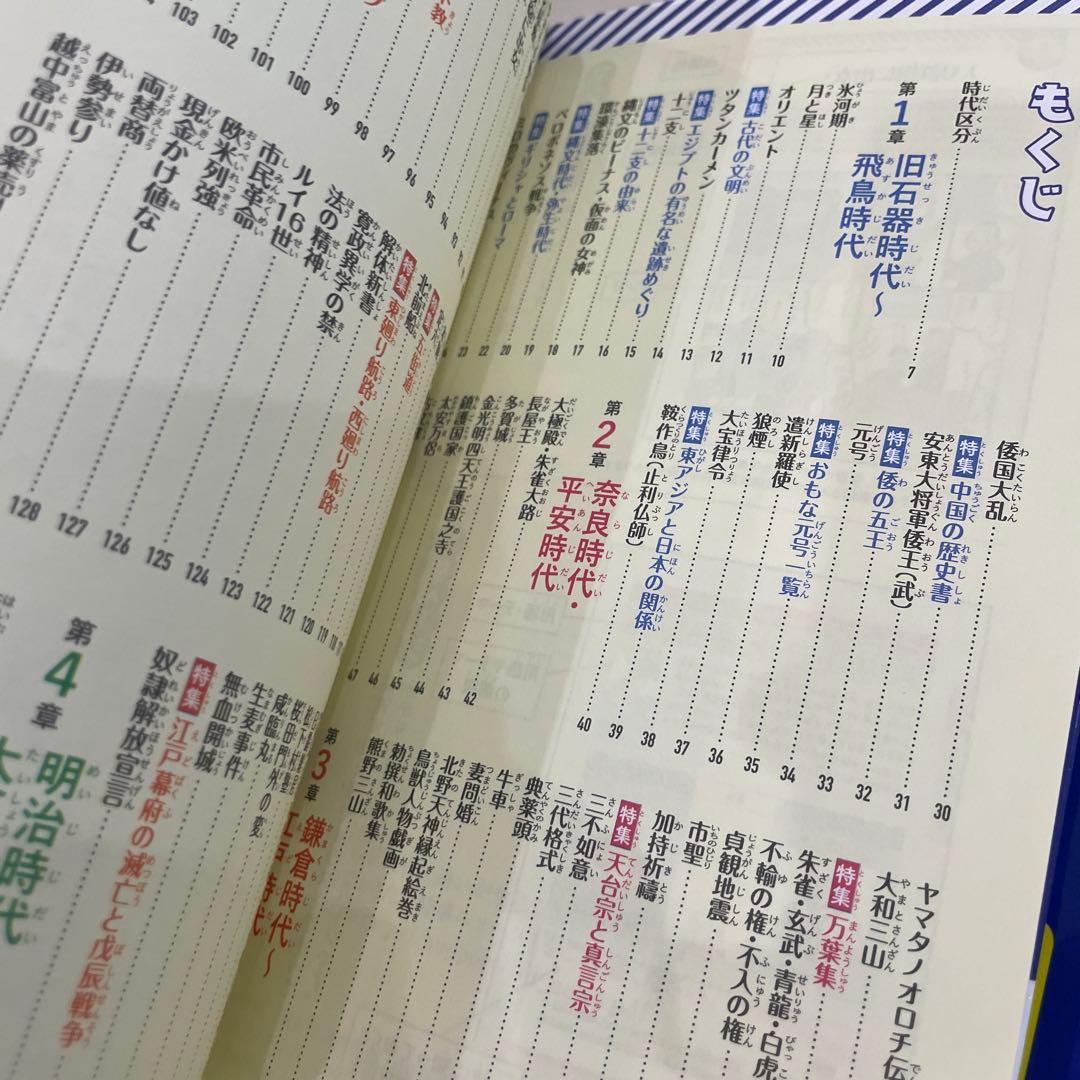 もくじ
時代区分 7
第1章 旧石器時代〜飛鳥時代
氷河期 10
月と星 11
オリエント 12
特集 古代の文明 13
ツタンカーメン 14
特集 エジプトの有名な遺跡めぐり 15
十二支 16
特集 十二支の由来 17
縄文のビーナス・仮面の女神 18
環濠集落 19
特集 縄文時代・弥生時代 20
ペロポネソス戦争 22
特集 ギリシャとローマ 23
倭国大乱 30
特集 中国の歴史書 31
安東大将軍倭王(武) 32
特集 倭の五王 33
元号 34
特集 おもな元号一覧 35
遣新羅使 36
狼煙 37
大宝律令 38
特集 東アジアと日本の関係 39
鞍作鳥(止利仏師) 40
第2章 奈良時代・平安時代
大極殿・朱雀大路 42
長屋王 43
多賀城 44
金光明四天王護国之寺 45
鎮護国家 46
太安万侶 47
ヤマタノオロチ伝
大和三山
特集 万葉集
朱雀・玄武・青龍・白虎
不輸の権・不入の権
貞観地震
市聖
加持祈禱
特集 天台宗と真言宗
三不如意
三代格式
典薬頭
牛車
妻問婚
北野天神縁起絵巻
鳥獣人物戯画
勅撰和歌集
熊野三山
第3章 鎌倉時代〜江戸時代
104
103
102
101
100
99
98
97
96
95
94
特集 五街道
北前船
特集 東廻り航路・西廻り航路
解体新書
寛政異学の禁
法の精神
ルイ16世
市民革命
欧米列強
現金かけ値なし
両替商
伊勢参り
越中富山の薬売り
118
119
120
121
122
123
124
125
126
127
128
桜田門外の変
咸臨丸
生麦事件
無血開城
特集 江戸幕府の滅亡と戊辰戦争
奴隷解放宣言
第4章 明治時代